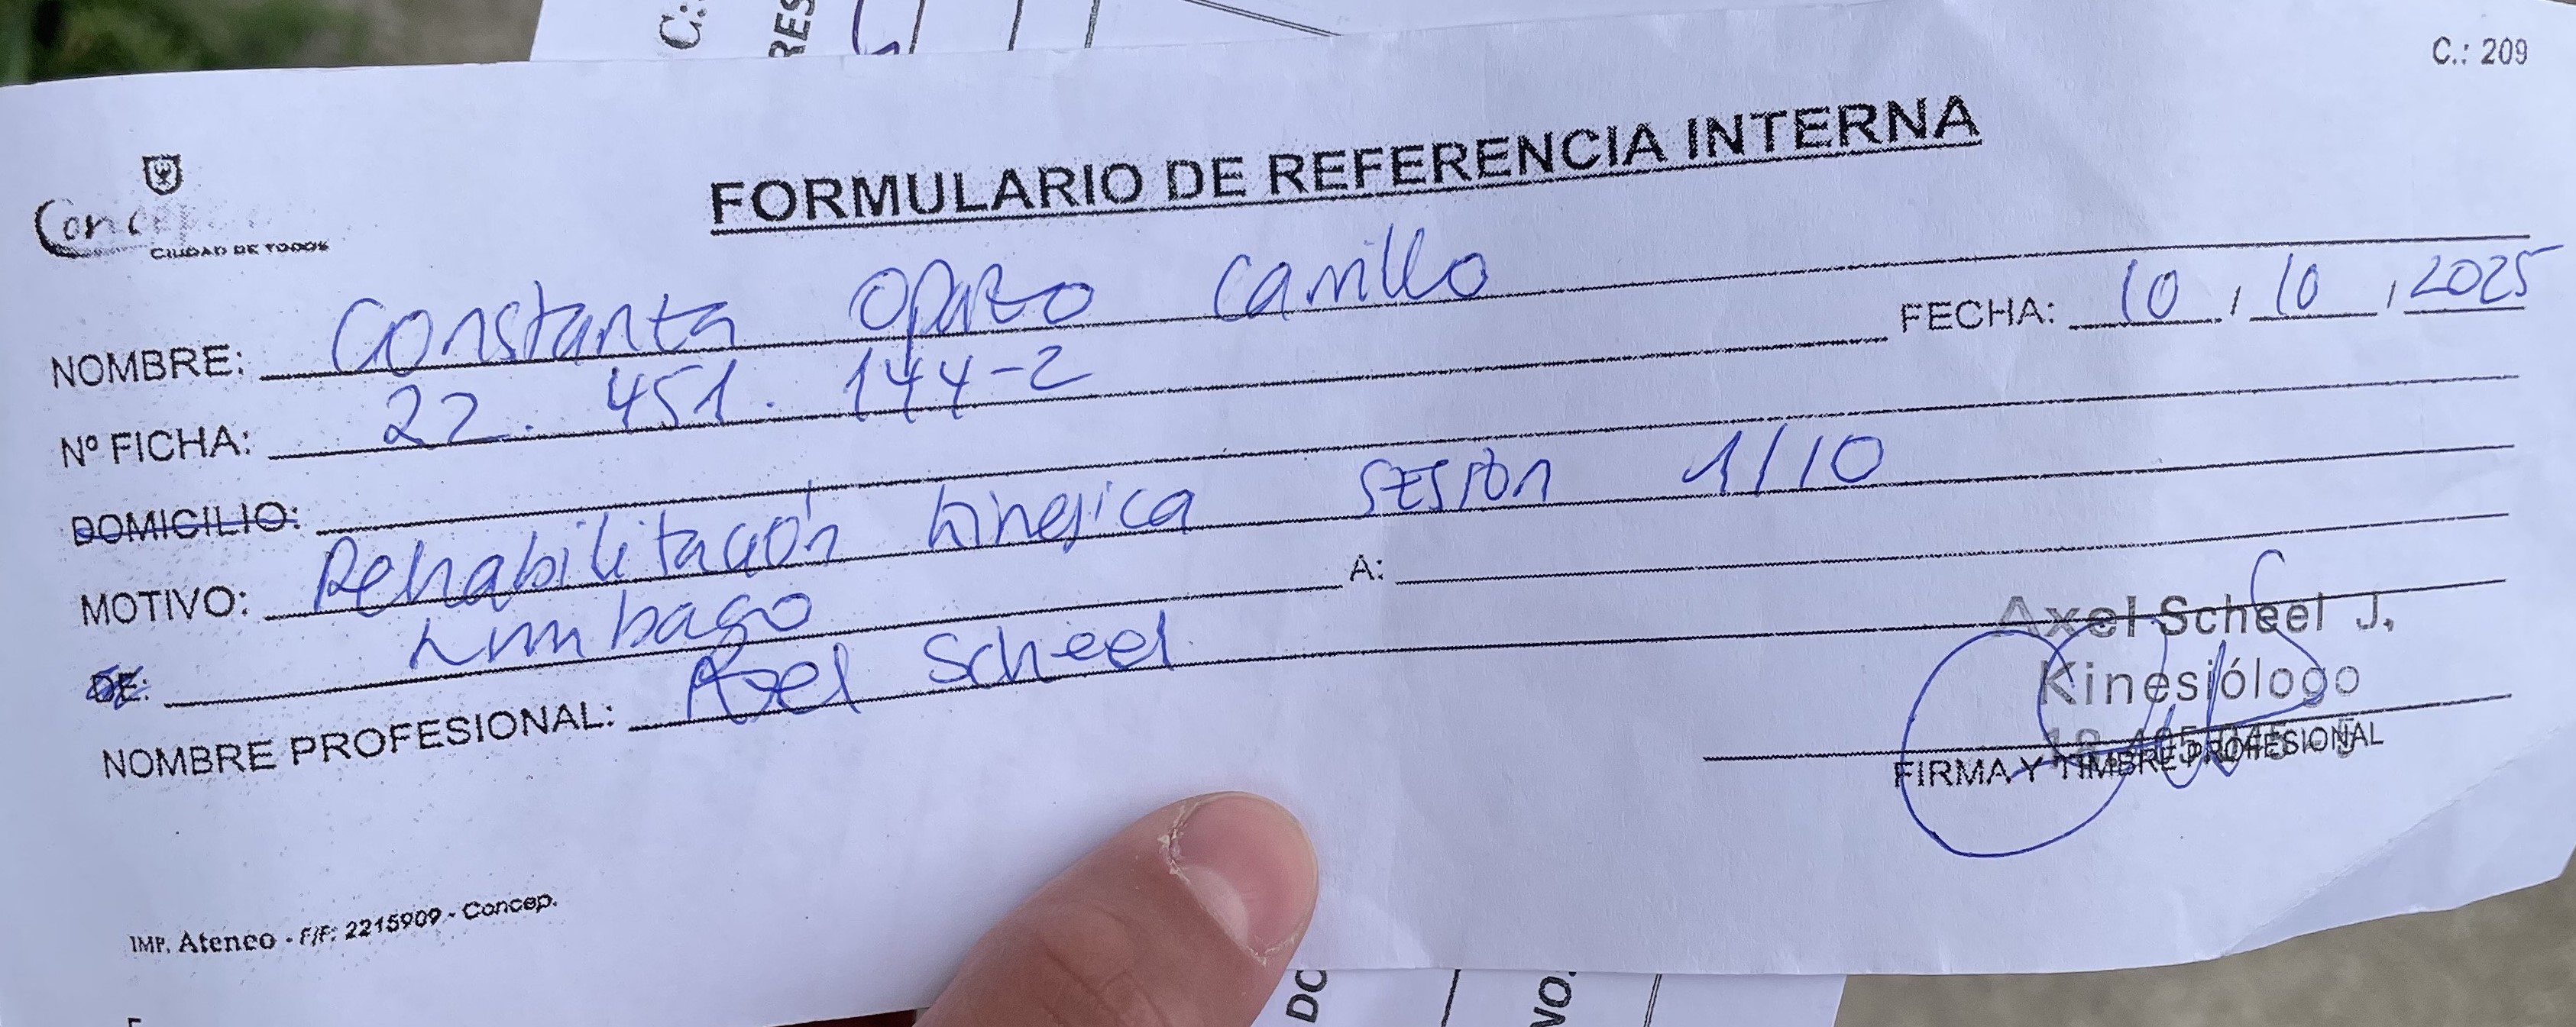 C.:
RES
C.: 209
CIUDAD DE TODOS
FORMULARIO DE REFERENCIA INTERNA
NOMBRE: Constanza Opazo Carrillo
Nº FICHA: 22.451.144-2 FECHA: 10 / 10 / 2025
DOMICILIO:
MOTIVO: Rehabilitación kinesica sesión 1/10
DE: Lumbago A:
NOMBRE PROFESIONAL: Axel Scheel
Axel Scheel J.
Kinesiólogo
FIRMA Y TIMBRE PROFESIONAL
IMP. Ateneo - F/F: 2215909 - Concep.
DO
NO.